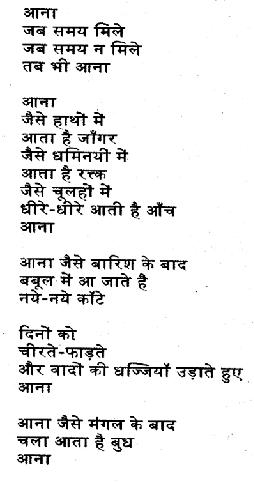 आना
जब समय मिले
जब समय न मिले
तब भी आना
आना
जैसे हाथों में
आता है जाँगर
जैसे धमिनयीं में
आता है रत्क
जैसे चूलहों में
धीरे-धीरे आती है आँच
आना
आना जैसे बारिश के बाद
बबूल में आ जाते है
नये-नये काँटे
दिनों को
चीरते-फाड़ते
और वादों की धज्जियाँ उड़ाते हुए
आना
आना जैसे मंगल के बाद
चला आता है बुध
आना